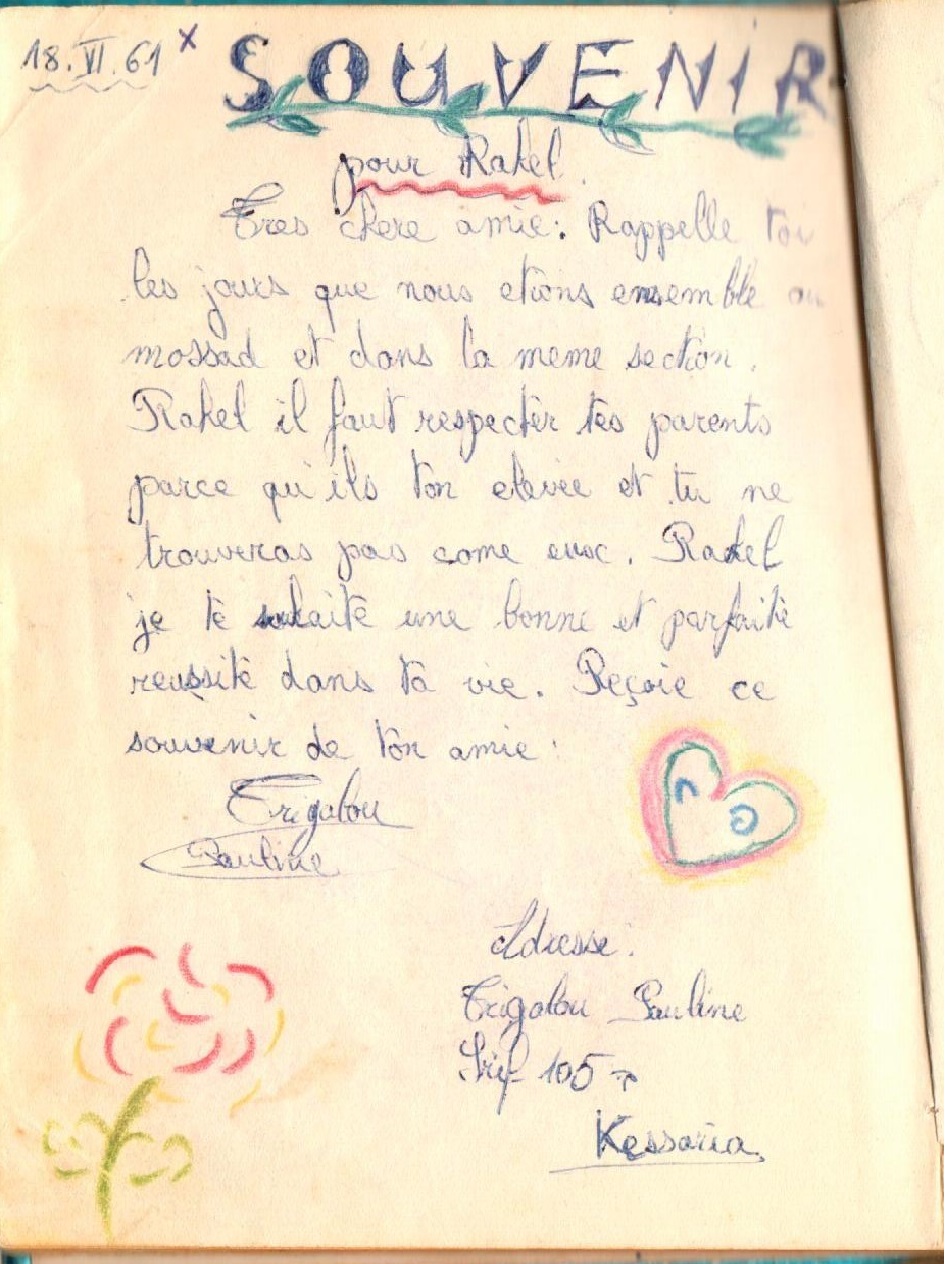 18.VI.61 x
SOUVENIR
pour Rakel.
Tres chere amie: Rappelle toi
les jours que nous etions ensemble au
mossad et dans la meme section.
Rakel il faut respecter tes parents
parce qu'ils t'on elevée et tu ne
trouveras pas come eux. Rakel
je te souhaite une bonne et parfaite
reussite dans ta vie. Reçoie ce
souvenir de ton amie:
Trigalou
Pauline
Adresse:
Trigalou Pauline
105
Kessaria